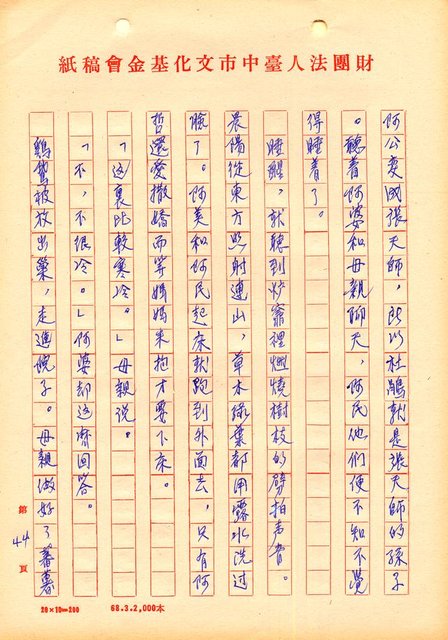 財團法人臺中市文化基金會稿紙
阿公变成張天師,所以杜鵑就是張天師的孫子
。聽着阿婆和母親聊天,阿民他們便不知不覺
得睡着了。
睡醒,就聽到炉竈裡燃燒樹枝的劈拍声音。
晨陽從東方照射連山,草木綠葉都用露水洗过
臉了。阿美和阿民起床就跑到外面去,只有阿
哲還愛撒嬌而等媽媽来抱才要下床。
「这裏比較寒冷。」母親説。
「不,不很冷。」阿婆却这麽回答。
鷄鴨被放出巢,走進院子。母親做好了蕃薯
第 44 頁
20×10=200
68.3.2,000本